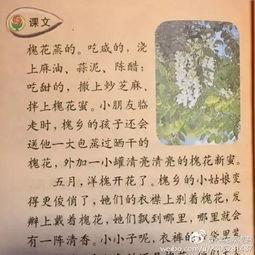 课文
槐花蒸的。吃咸的，浇
上麻油、蒜泥、陈醋；
吃甜的，撒上炒芝麻、
拌上槐花蜜。小朋友临
走时，槐乡的孩子还会
送他一大包蒸过晒干的
槐花，外加一小罐清亮清亮的槐花新蜜。
五月，洋槐开花了。槐乡的小姑娘变
得更俊俏了，她们的衣襟上别着槐花，发
辫上戴着槐花，她们飘到哪里，哪里就会
有一阵清香。小小子呢，衣裤的口袋里装